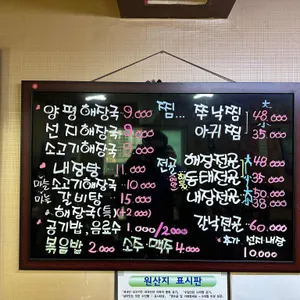 양평해장국 9000 찜... 쭈낙찜 大 48.000
선지해장국 9000 아귀찜 小 35.000
소고기해장국 9000
내장탕 11.000 전골 해장전골 大 48.000
마늘 소고기해장국 10.000 동태전골 小 35.000
마늘 갈비탕 15.000 내장전골 50.000 38.000
해장국(특)(x+2.000)
공기밥, 음료수 1.000/2000 갈낙전골 60.000
볶음밥 2000 소주·맥주 4.000 추가 선지내장 10.000
원산지 표시판